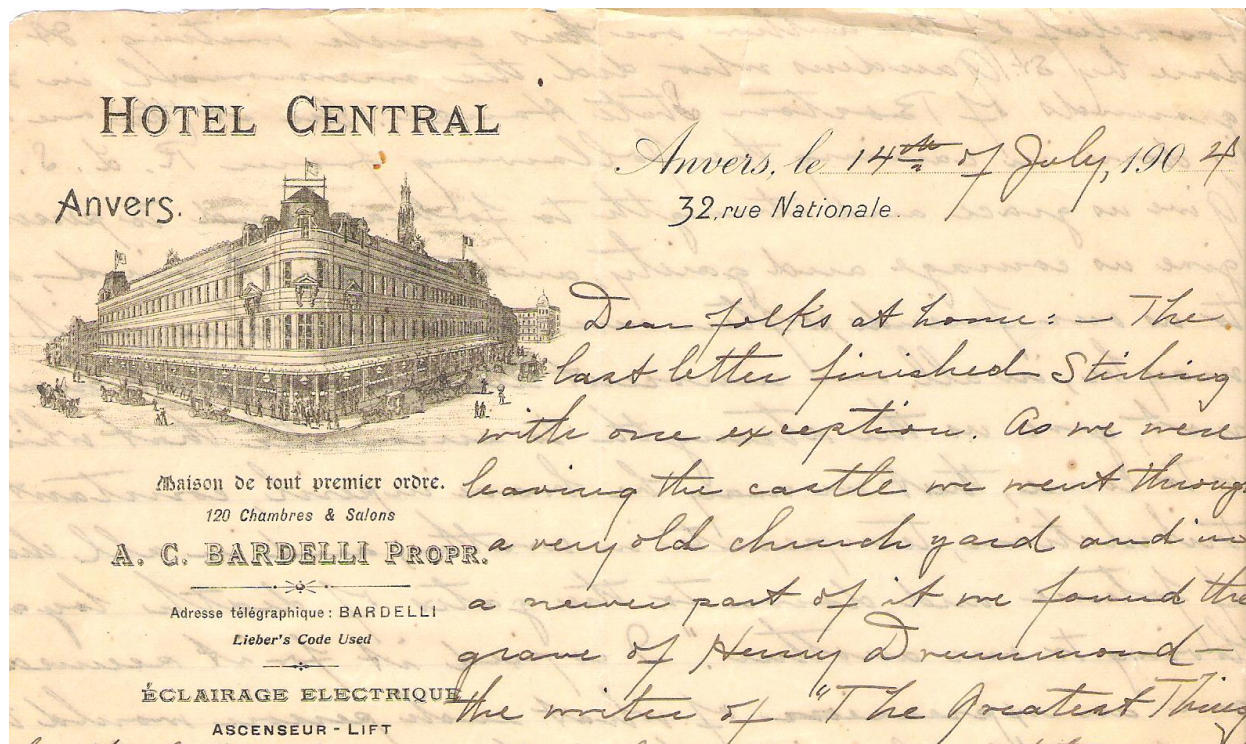 HOTEL CENTRAL
Anvers.
Maison de tout premier ordre.
120 Chambres & Salons
A. C. BARDELLI PROPR.
Adresse télégraphique : BARDELLI
Lieber's Code Used
ÉCLAIRAGE ELECTRIQUE
ASCENSEUR - LIFT
Anvers, le 14th of July, 1904
32, rue Nationale.
Dear folks at home: – The
last letter finished Stirling
with one exception. As we were
leaving the castle we went through
a very old church yard and in
a newer part of it we found the
grave of Henry Drummond –
the writer of "The Greatest Thing